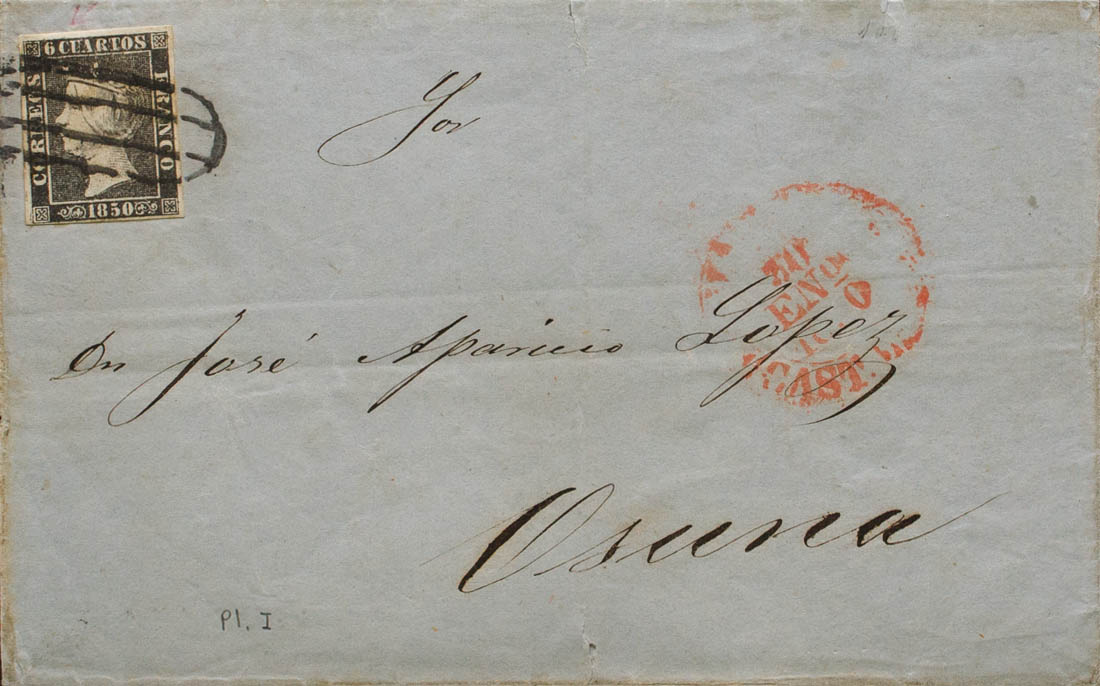 6 CUARTOS
CORREOS
FRANCO
1850
Sor
Dn José Aparicio Lopez
Osuna
30
ENO
CAST.
Pl. I